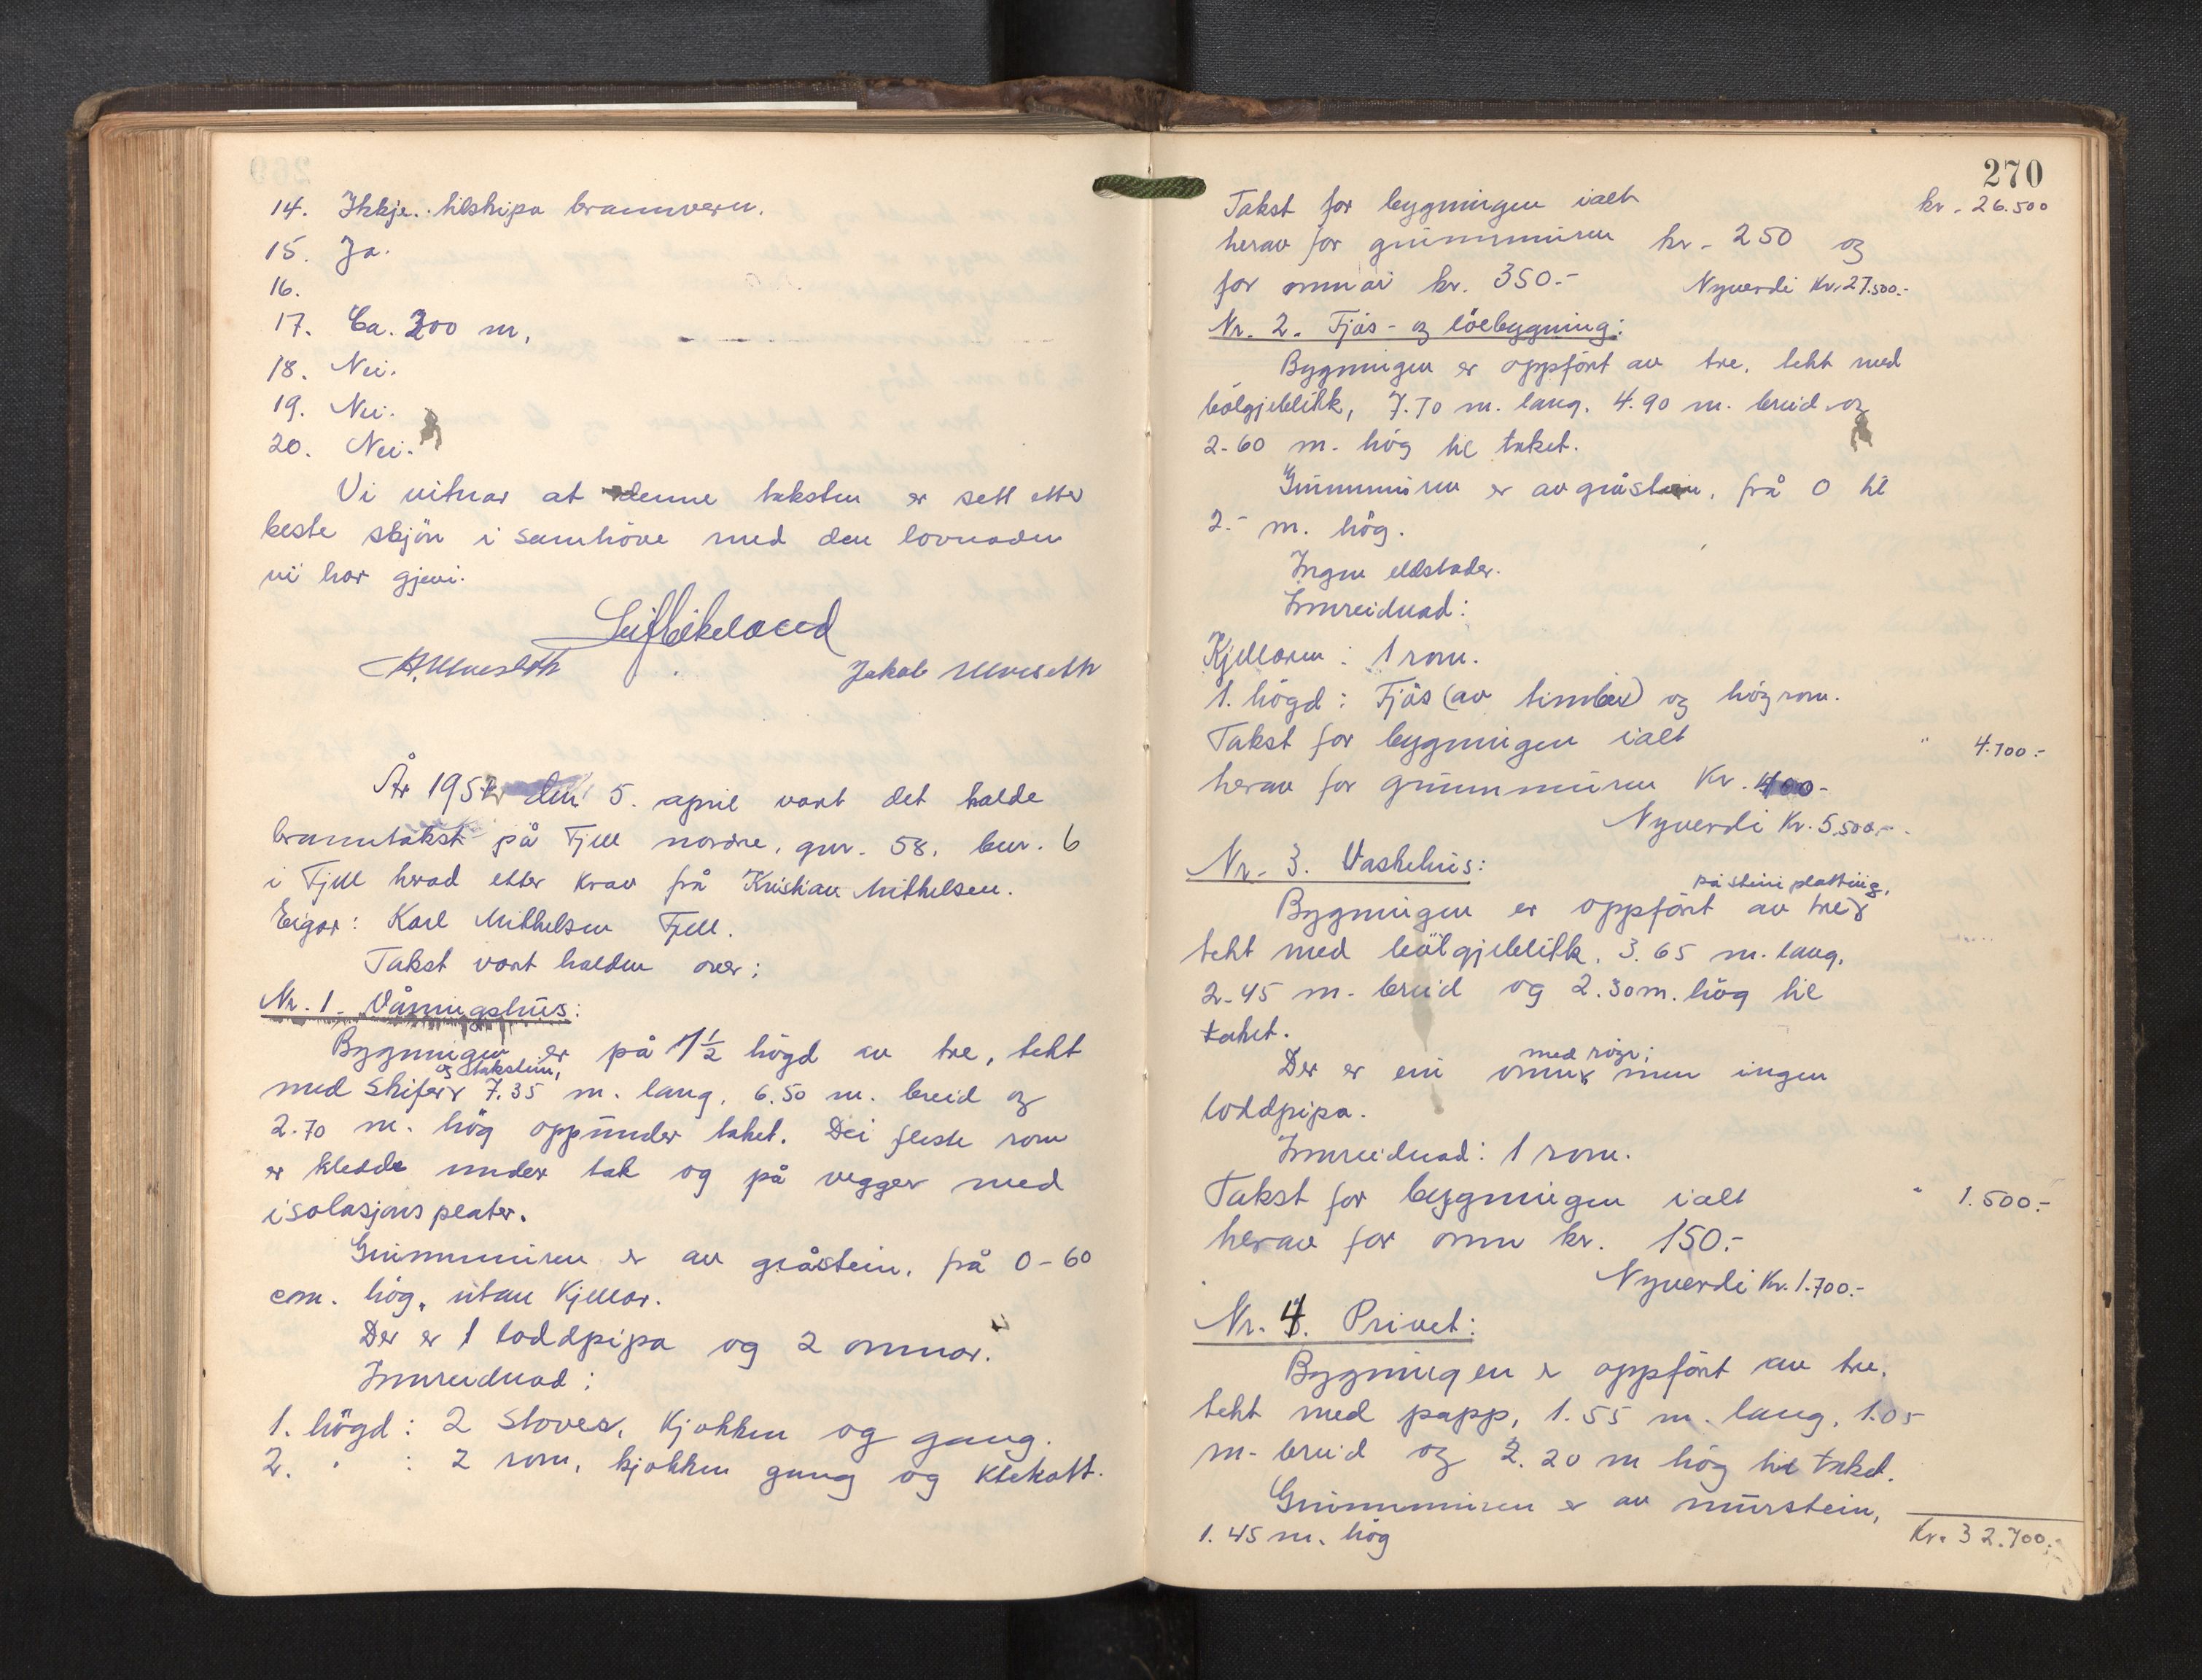 14. Ikkje tilskipa brannvern.
15. Ja.
16.
17. Ca. 200 m,
18. Nei.
19. Nei.
20. Nei.
Vi vitnar at denne taksten er sett etter
beste skjön i samhöve med den lovnaden
vi har gjevi.
Jakob Ulveseth
År 1952 den 5. april vart det halde
branntakst på Fjell nordre, gnr. 58, bnr. 6
i Fjell herad etter krav frå Kristian Mikkelsen.
Eigar: Karl Mikkelsen Fjell.
Takst vart halden over:
Nr. 1. Våningshus:
Bygningen er på 1½ högd av tre, tekt
og takstein,
med skifer 7.35 m. lang, 6.50 m. breid og
2.70 m. hög oppunder taket. Dei fleste rom
er kledde under tak og på vegger med
isolasjonsplater.
Grunnmuren er av gråstein, frå 0-60
cm. hög, utan kjellar.
Der er 1 loddpipa og 2 omnar.
Innreidnad:
1. högd: 2 stover, kjökken og gang.
2. " : 2 rom, kjökken gang og klekott.
270
Takst for bygningen ialt kr. 26.500
herav for grunnmuren kr. 250 og
for omnar kr. 350.-
Nyverdi Kr. 27.500.-
Nr. 2. Fjös- og löebygning:
Bygningen er oppfört av tre, tekt med
bölgjeblikk, 7.70 m. lang, 4.90 m. breid og
2.60 m. hög til taket.
Grunnmuren er av gråstein, frå 0 til
2.- m. hög.
Ingen eldstader.
Innreidnad:
Kjellaren: 1 rom.
1. högd: Fjös (av timber) og höyrom.
Takst for bygningen ialt " 4.700.-
herav for grunnmuren Kr. 400-
Nyverdi Kr. 5.500.-
Nr. 3. Vaskehus:
på stein platting,
Bygningen er oppfört av tre
tekt med bölgjeblikk, 3.65 m. lang,
2.45 m. breid og 2.30 m. hög til
taket.
med röyr;
Der er ein omn men ingen
loddpipa.
Innreidnad: 1 rom.
Takst for bygningen ialt " 1.500.-
herav for omn kr. 150.-
Nyverdi Kr. 1.700.-
Nr. 4. Privet:
Bygningen er oppfört av tre.
tekt med papp, 1.55 m. lang, 1.05
m. breid og 2.20 m hög til taket.
Grunnmuren er av murstein,
1.45 m. hög
Kr. 32.700.-